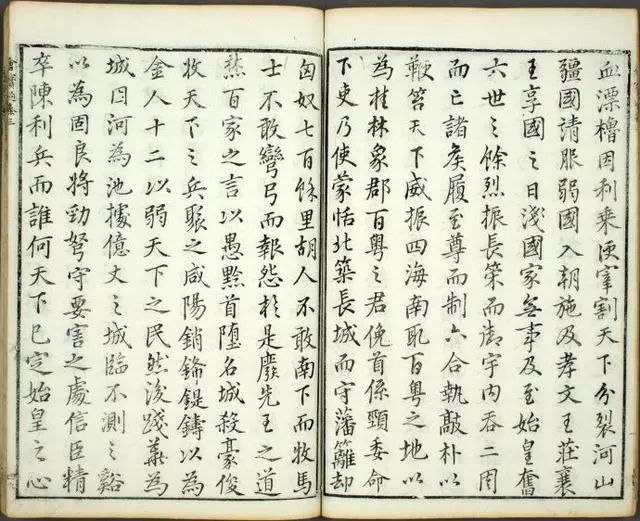 血漂櫓因利乘便宰割天下分裂河山
疆國請服弱國入朝施及孝文王莊襄
王享國之日淺國家無事及至始皇奮
六世之餘烈振長策而御宇內吞二周
而亡諸侯履至尊而制六合執敲朴以
鞭笞天下威振四海南取百粵之地以
為桂林象郡百粵之君俛首係頸委命
下吏乃使蒙恬北築長城而守藩籬却
匈奴七百餘里胡人不敢南下而牧馬
士不敢彎弓而報怨於是廢先王之道
焚百家之言以愚黔首墮名城殺豪俊
收天下之兵聚之咸陽銷鋒鍉鑄以為
金人十二以弱天下之民然後踐華為
城因河為池據億丈之城臨不測之谿
以為固良將勁弩守要害之處信臣精
卒陳利兵而誰何天下已定始皇之心